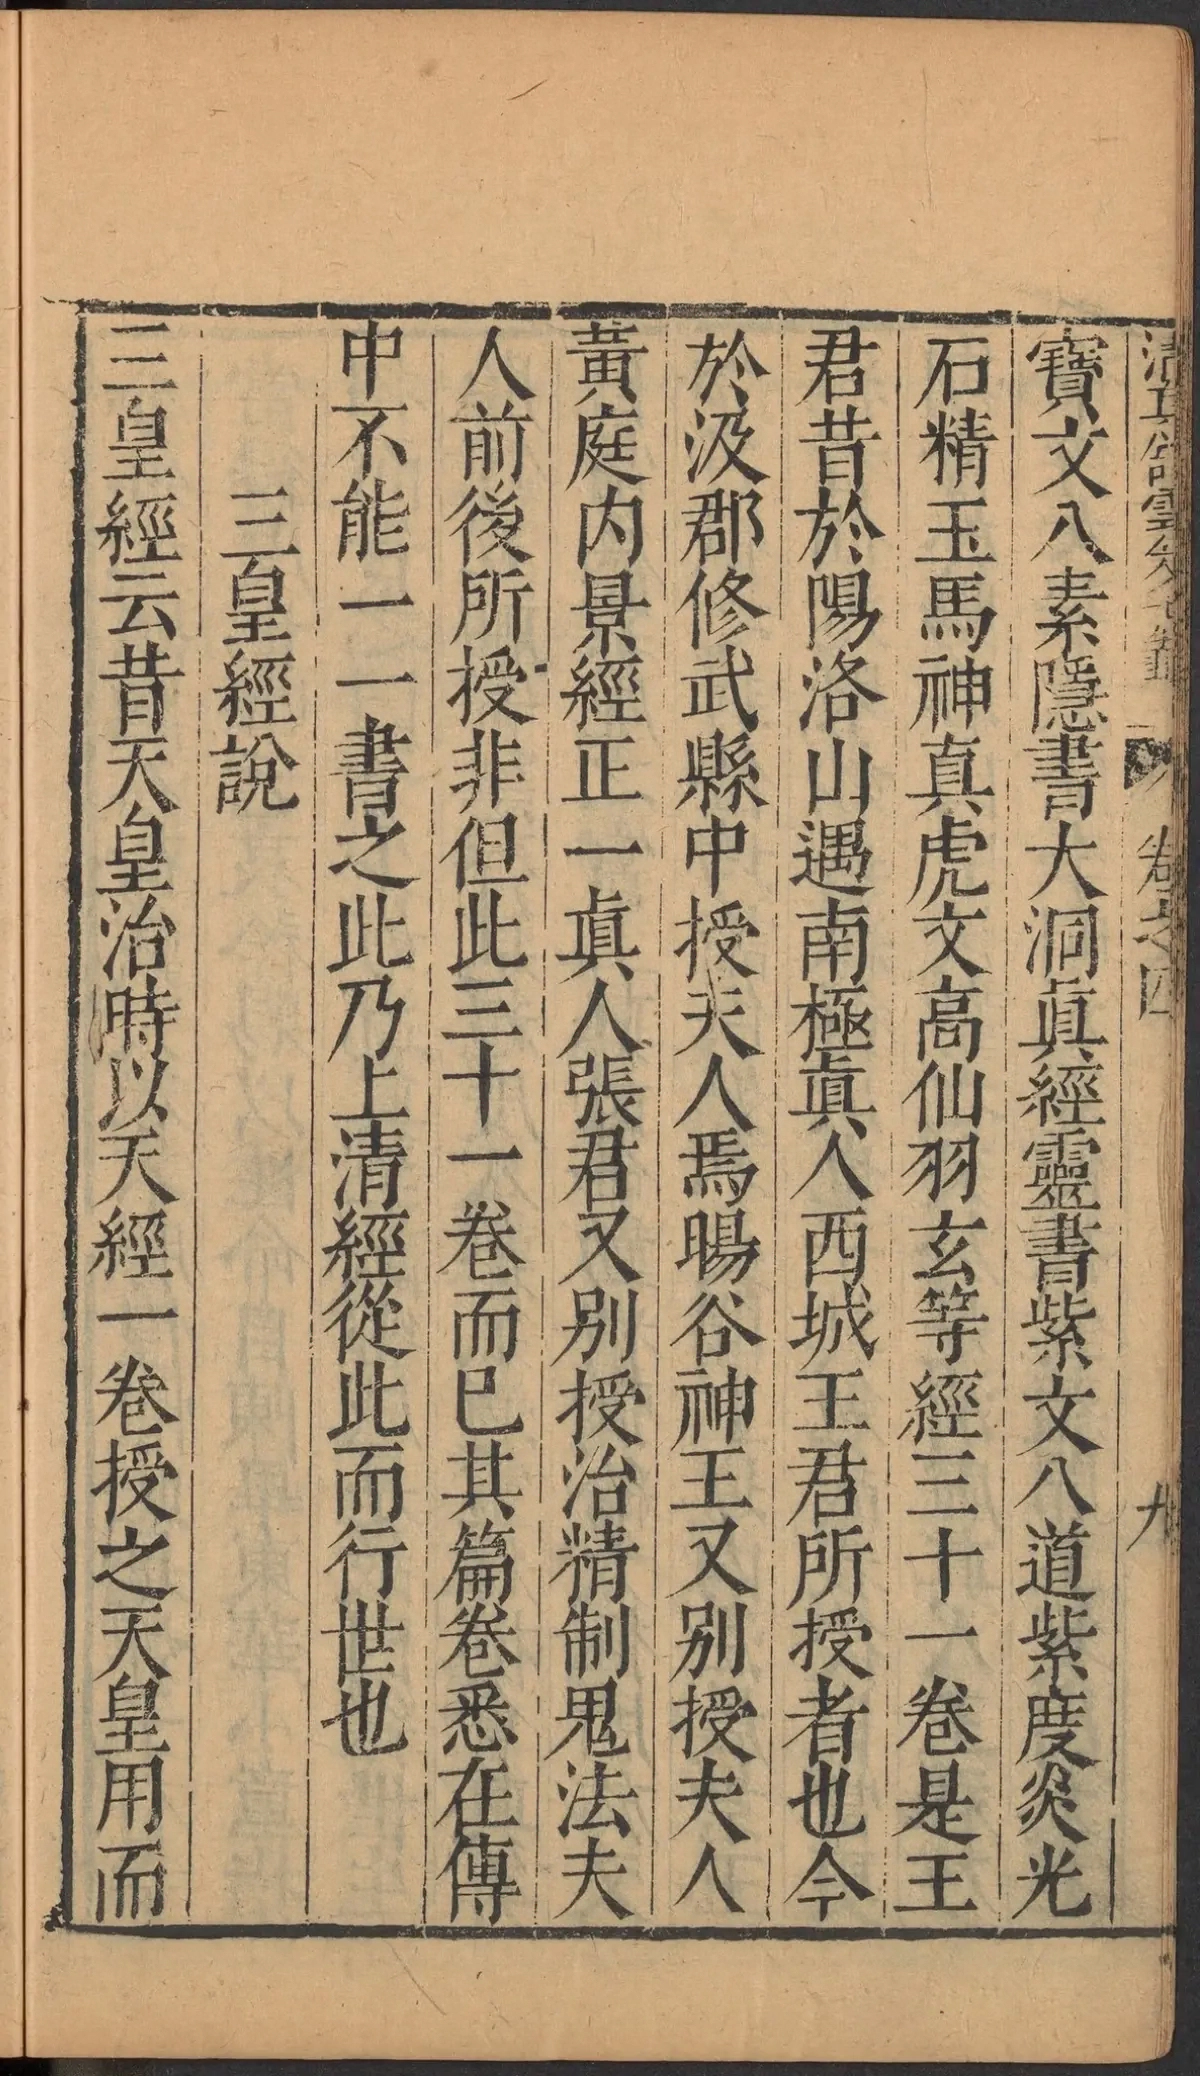 清真館雲笈七籤 卷之四 九
寶文八素隱書大洞眞經靈書紫文八道紫度炎光
石精玉馬神真虎文高仙羽玄等經三十一卷是王
君昔於陽洛山遇南極眞人西城王君所授者也今
於汲郡修武縣中授夫人焉暘谷神王又別授夫人
黃庭内景經正一眞人張君又別授治精制鬼法夫
人前後所授非但此三十一卷而已其篇卷悉在傳
中不能一一書之此乃上清經從此而行世也
三皇經說
三皇經云昔天皇治時以天經一卷授之天皇用而